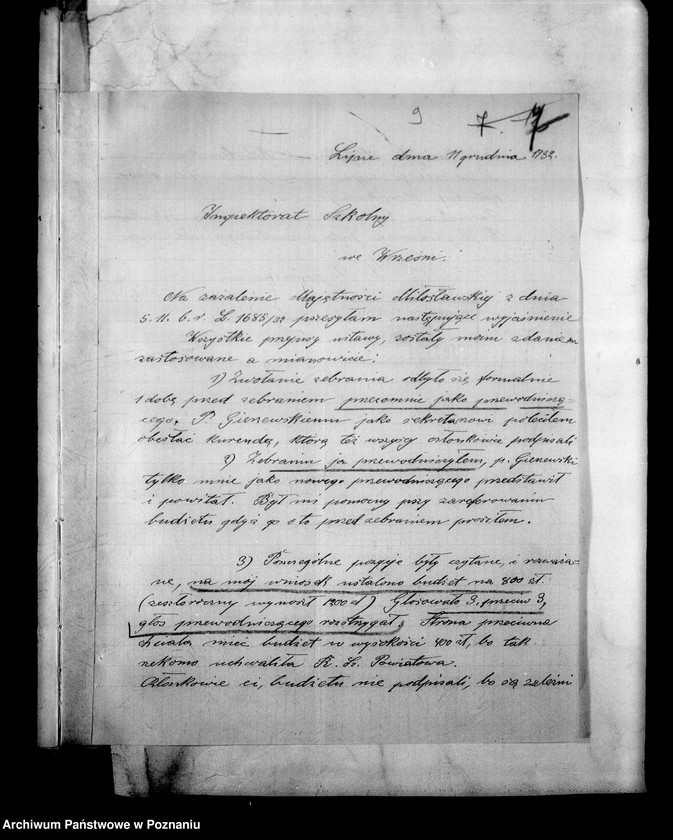 9
Lipie dnia 11 grudnia 1932.
Inspektorat Szkolny
we Wrześni.
Na zażalenie Majętności Miłosławskiej z dnia
5. 11. b. r. L. 1685/32 przesyłam następujące wyjaśnienie
Wszystkie przepisy ustawy, zostały moim zdaniem
zastosowane a mianowicie:
1) Zwołanie zebrania odbyło się formalnie
1 dobę przed zebraniem przezemnie jako przewodniczą-
cego. P. Gierzewskiemu jako sekretarzowi poleciłem
obesłać kurendę, którą też wszyscy członkowie podpisali
2) Zebraniu ja przewodniczyłem, p. Gierzewski
tylko mnie jako nowego przewodniczącego przedstawił
i powitał. Był mi pomocny przy zareferowaniu
budżetu gdyż go o to przed zebraniem prosiłem.
3) Poszczególne pozycje były czytane, i rozważa-
ne, na mój wniosek ustalono budżet na 800 zł.
(zeszłoroczny wynosił 1200 zł) Głosowało 3, przeciw 3,
głos przewodniczącego rozstrzygał. Strona przeciwna
chciała mieć budżet w wysokości 400 zł, bo tak
rzekomo uchwaliła R. S. Powiatowa.
Członkowie ci, budżetu nie podpisali, bo są zależni
Archiwum Państwowe w Poznaniu